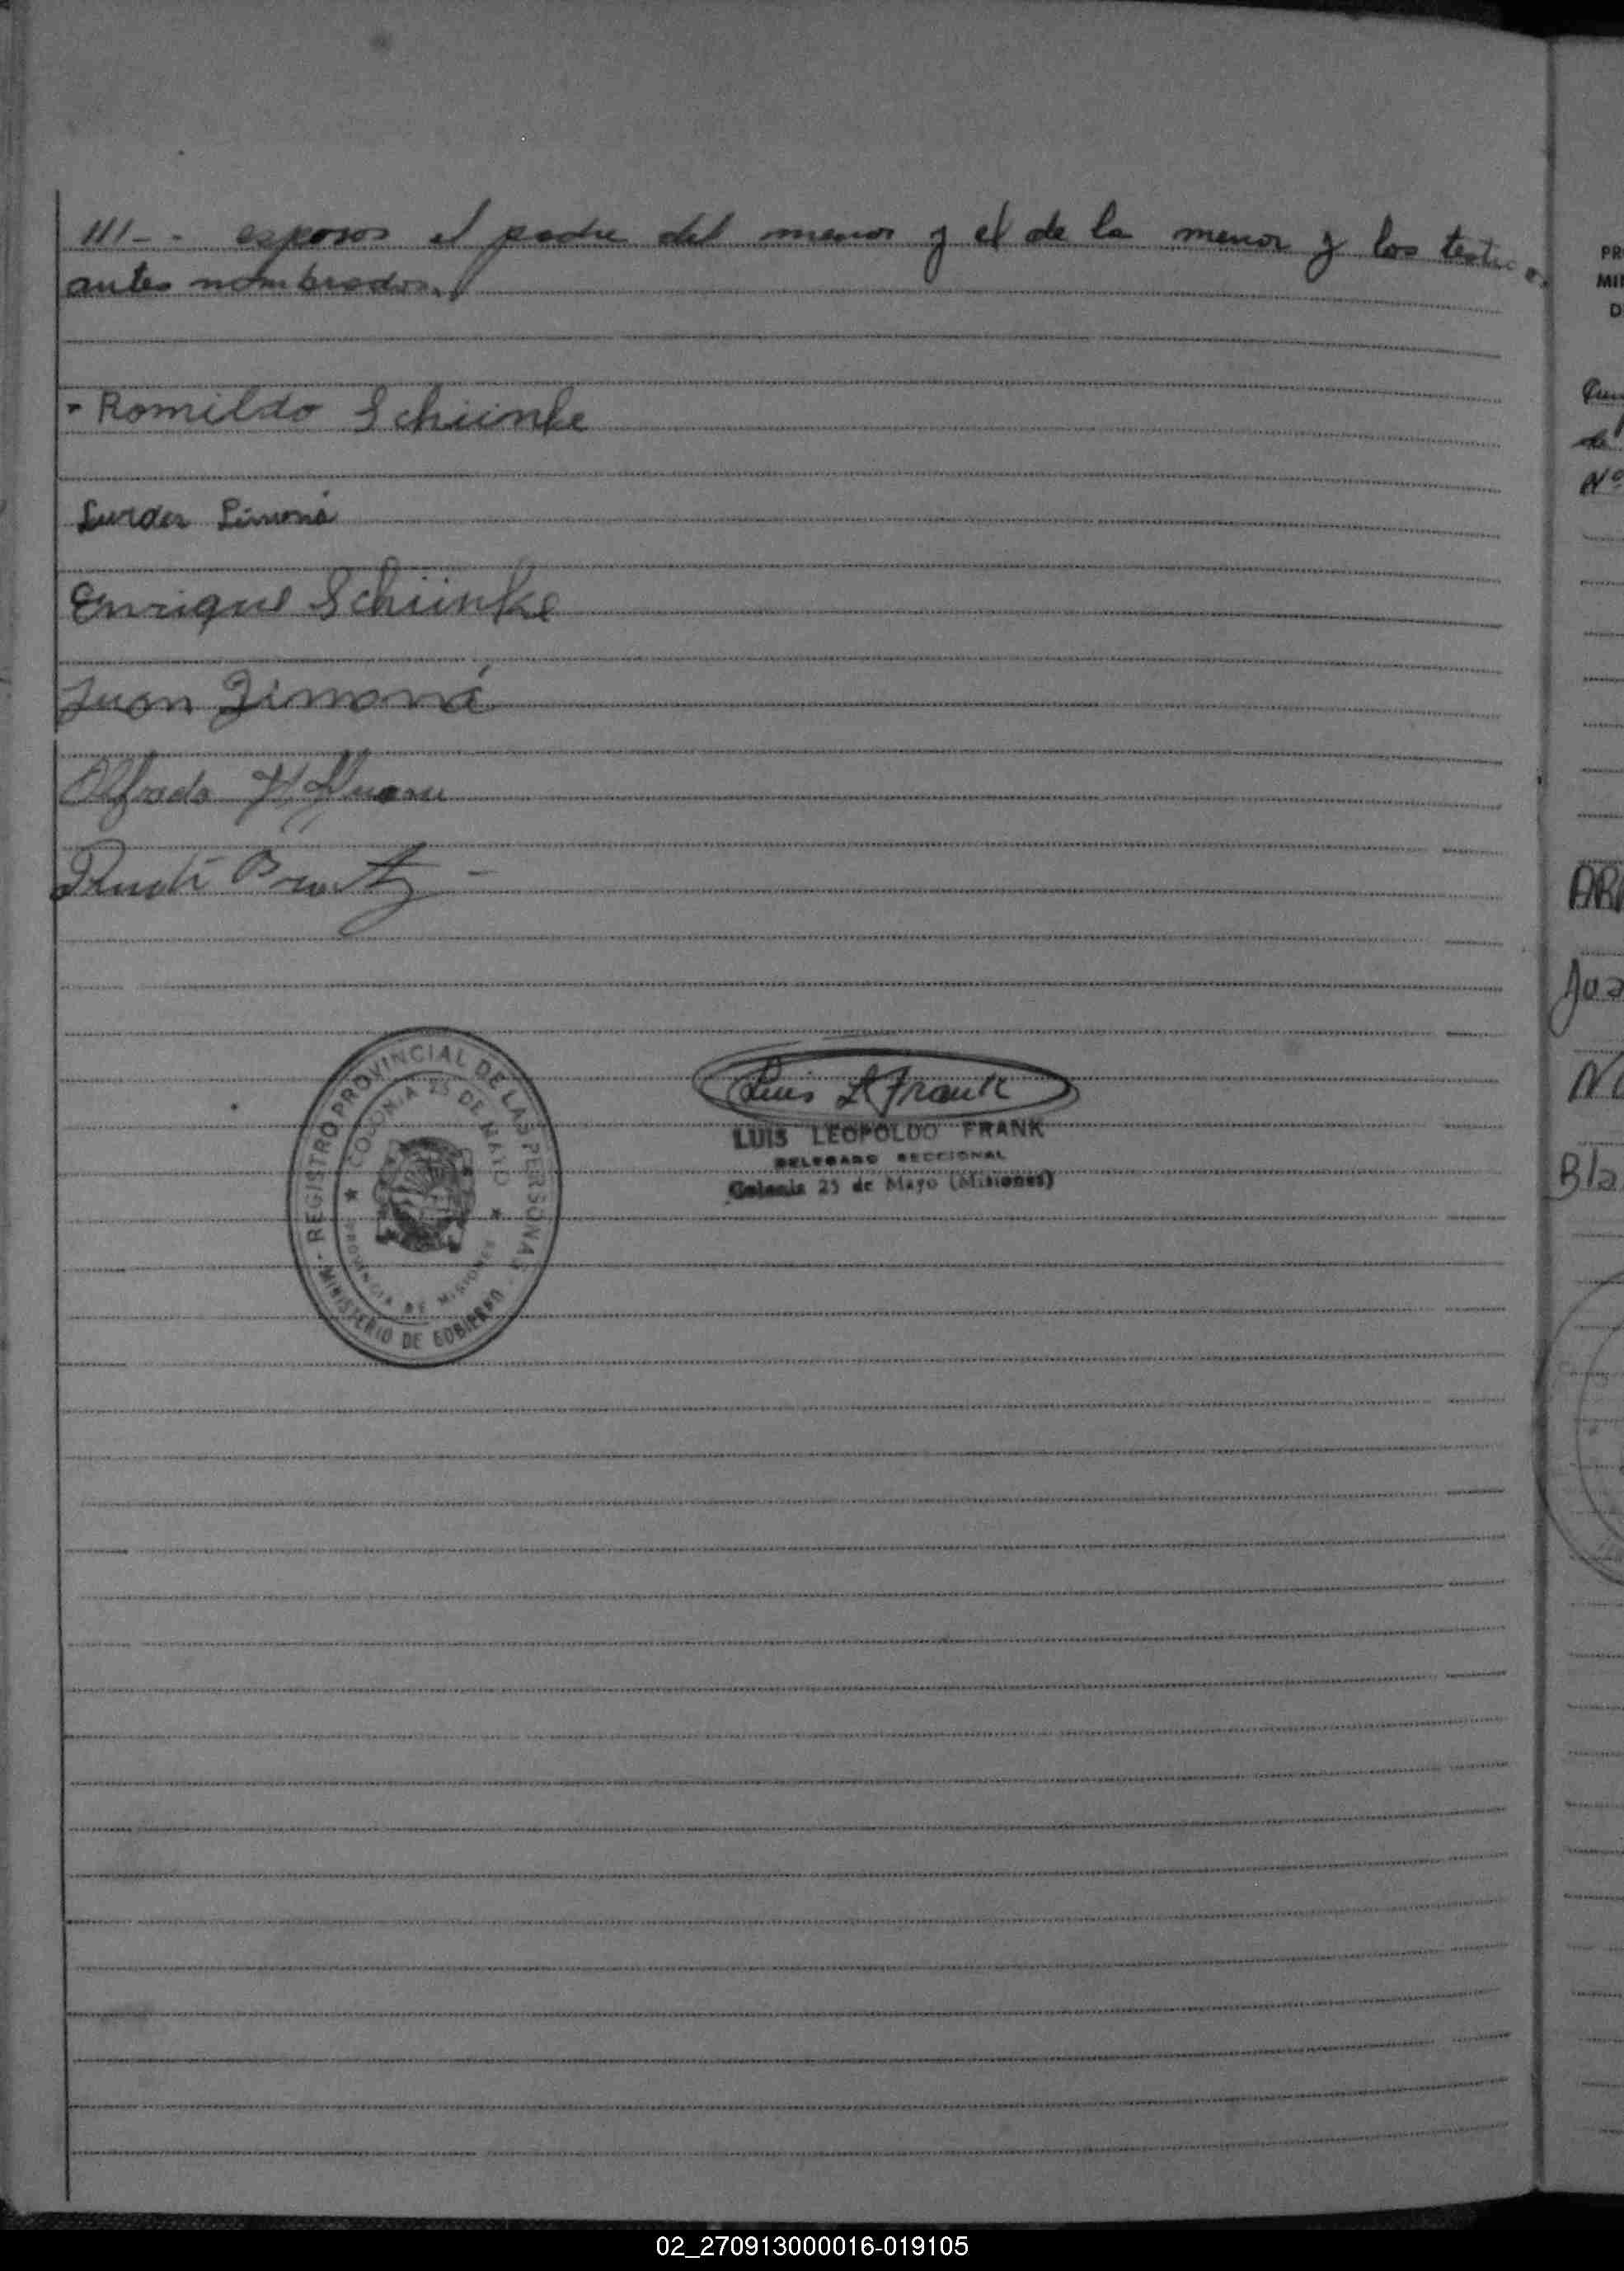 ///-. esposos el padre del menor y el de la menor y los testigos
antes nombrados.
- Romildo Schünke
Lurdes Limoná
Enrique Schünke
Juan Limoná
Alfredo Hoffmann
LUIS LEOPOLDO FRANK
Luis L Frank
DELEGADO SECCIONAL
Colonia 25 de Mayo (Misiones)
REGISTRO PROVINCIAL DE LAS PERSONAS
COLONIA 25 DE MAYO
PROVINCIA DE MISIONES
MINISTERIO DE GOBIERNO
PR
MI
D
de
Nº
Jua
Bla
02_270913000016-019105